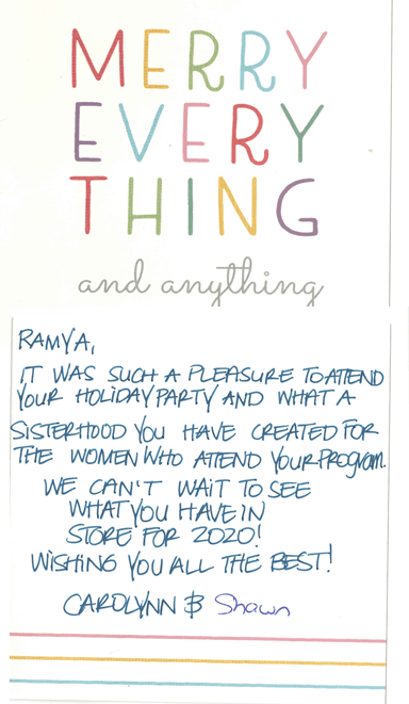 MERRY
EVERY
THING
and anything
RAMYA,
IT WAS SUCH A PLEASURE TO ATTEND
YOUR HOLIDAY PARTY AND WHAT A
SISTERHOOD YOU HAVE CREATED FOR
THE WOMEN WHO ATTEND YOUR PROGRAM.
WE CAN'T WAIT TO SEE
WHAT YOU HAVE IN
STORE FOR 2020!
WISHING YOU ALL THE BEST!
CAROLYNN & Shawn